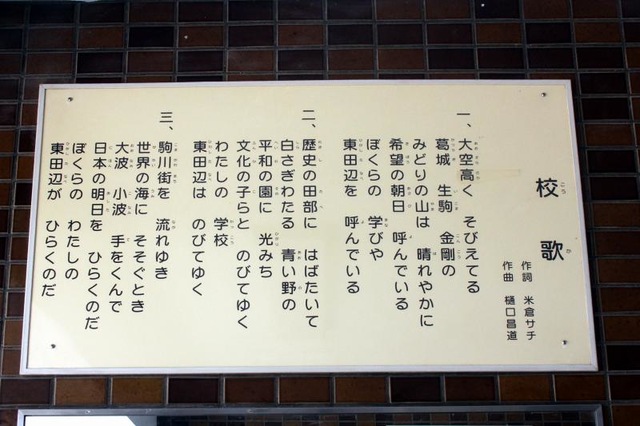 校歌
作詞 米倉サチ
作曲 樋口昌道
一、大空高く そびえてる
葛城 生駒 金剛の
みどりの山は 晴れやかに
希望の朝日 呼んでいる
ぼくらの 学びや
東田辺を 呼んでいる
二、歴史の田部に はばたいて
白さぎわたる 青い野の
平和の園に 光みち
文化の子らと のびてゆく
わたしの 学校
東田辺は のびてゆく
三、駒川街を 流れゆき
世界の海に そそぐとき
大波 小波 手をくんで
日本の明日を ひらくのだ
ぼくらの わたしの
東田辺が ひらくのだ